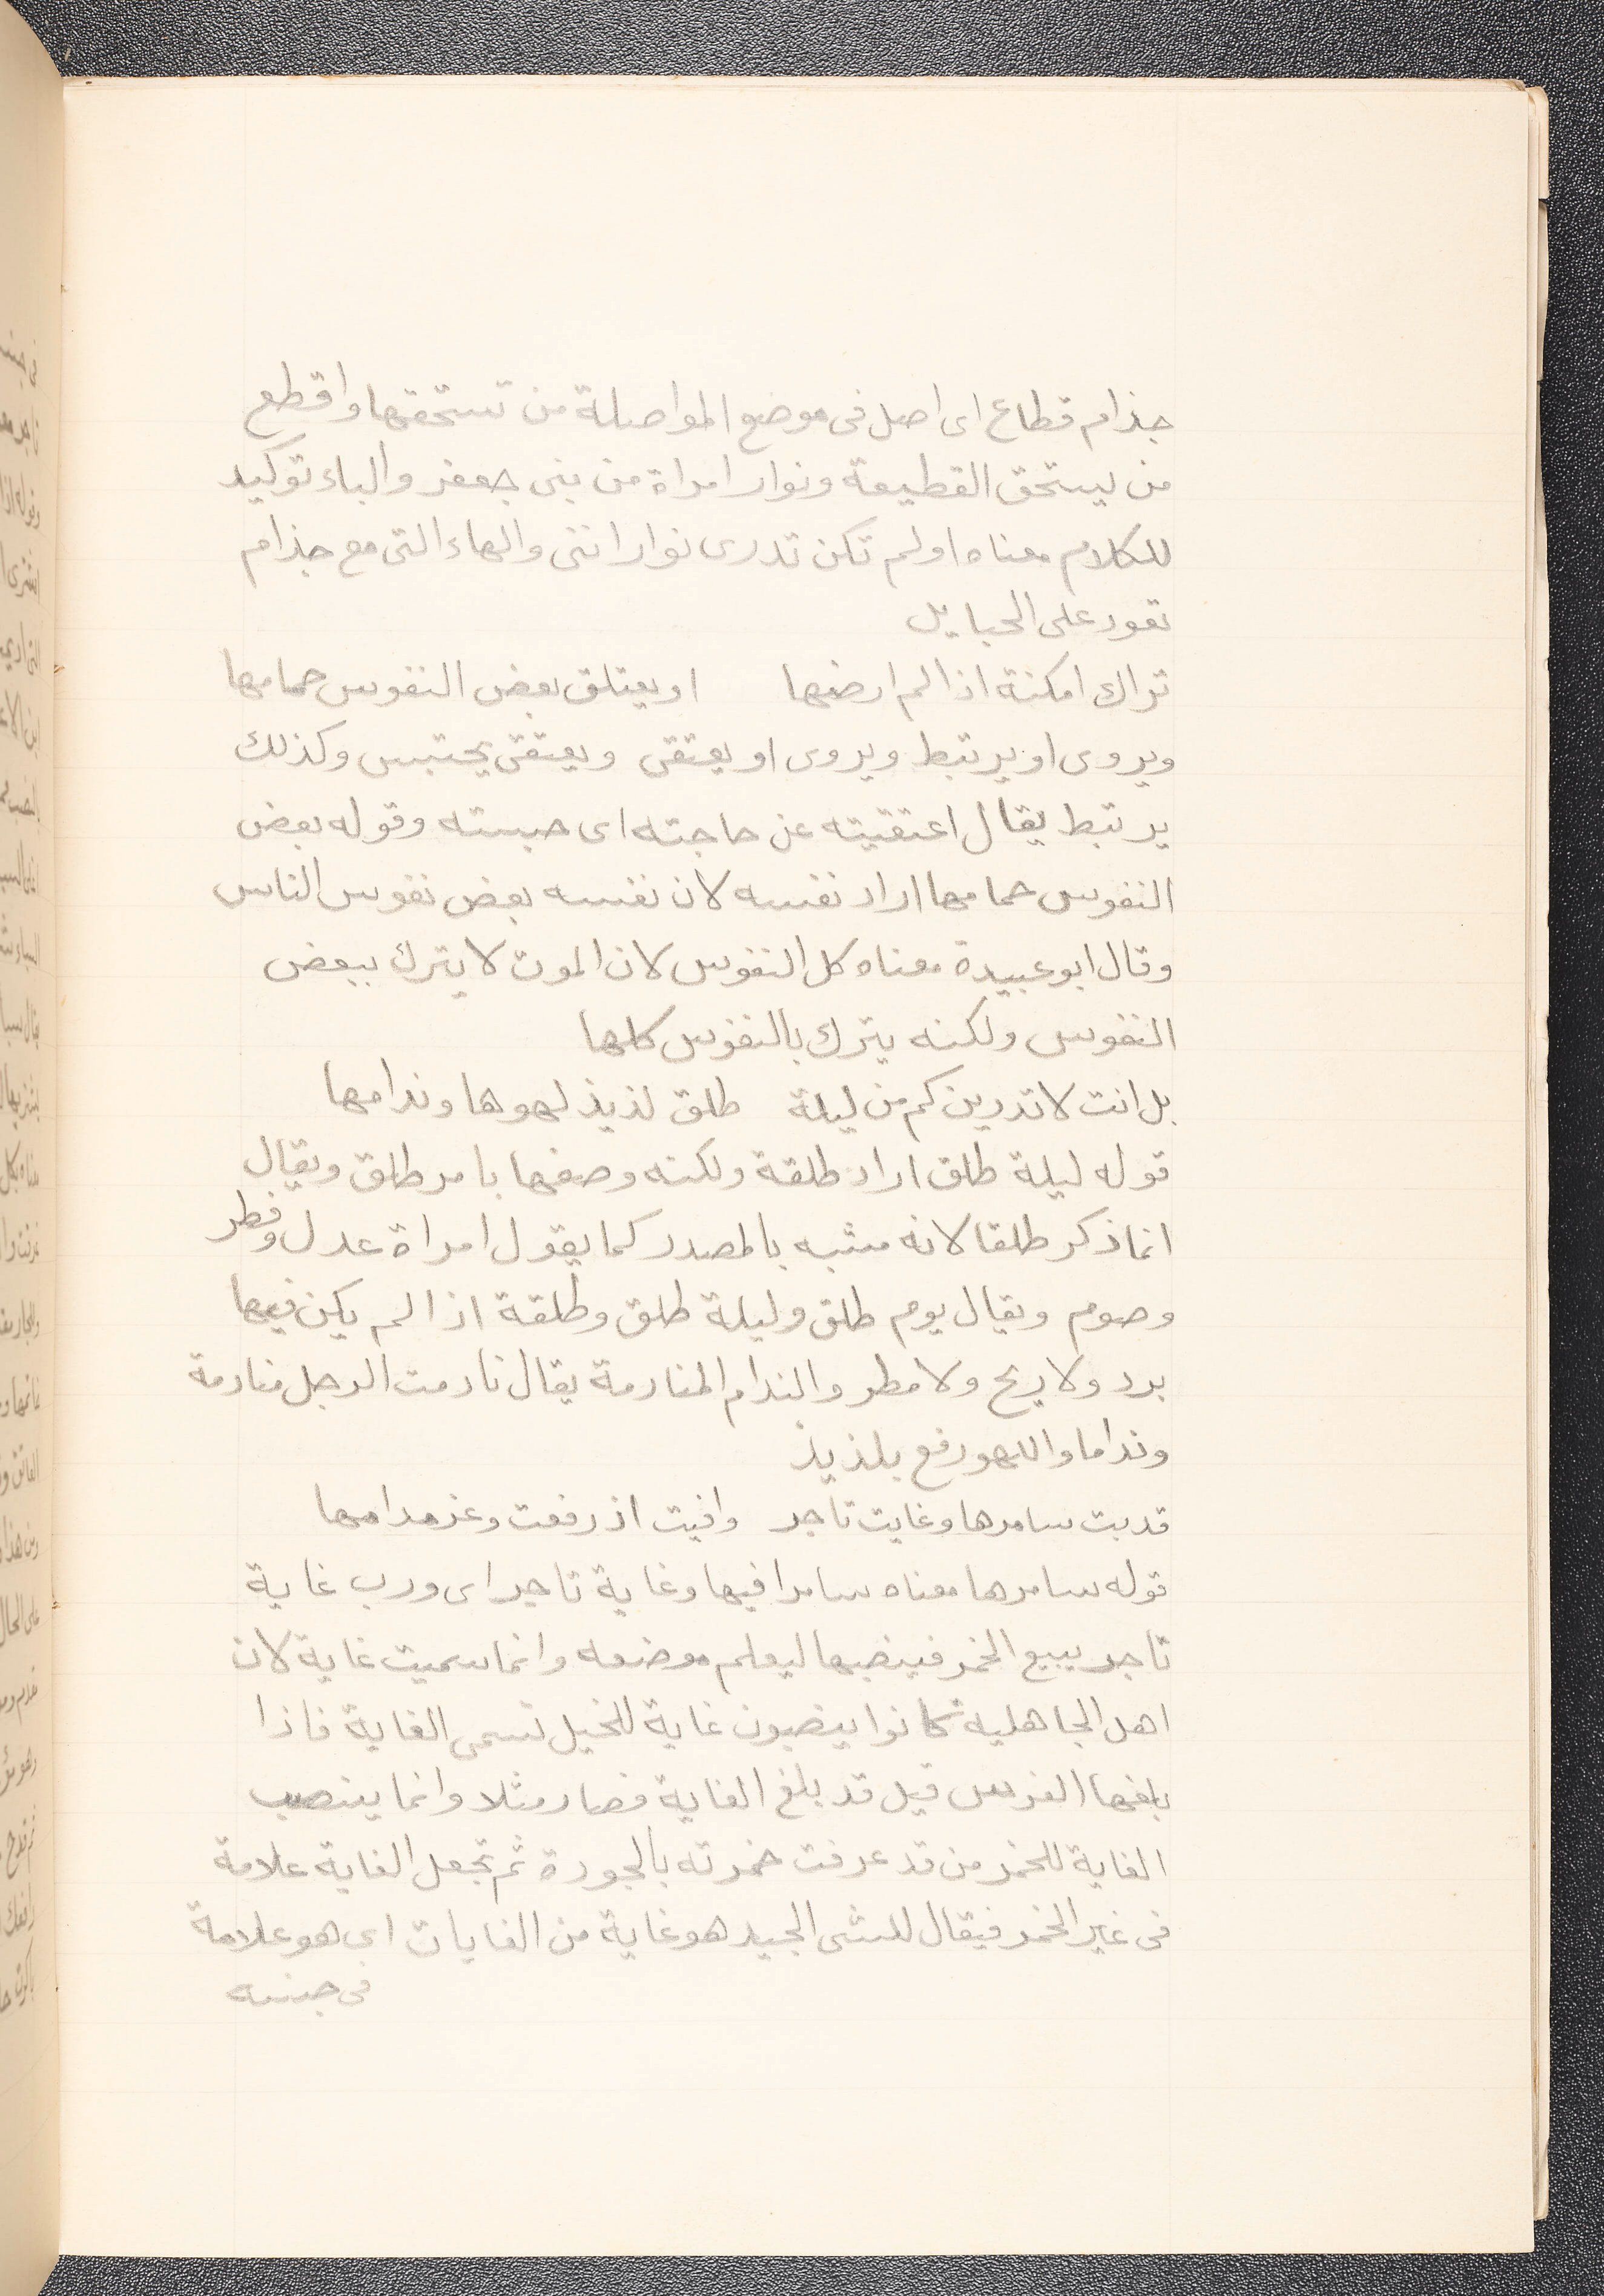 جذام قطاع اى اصل فى موضع المواصلة من تستحقها واقطع
من يستحق القطيعة ونوار امراة من بنى جعفر والباء توكيد
للكلام معناه اولم تكن تدرى نوار اننى والهاء التى مع جذام
تعود على الحبايل
تراك امكنة اذا لم ارضها او يعتلق بعض النفوس حمامها
ويروى او يرتبط ويروى او يعتقى ويعتقى يحتبس وكذلك
يرتبط يقال اعتقيته عن حاجته اى حبسته وقوله بعض
النفوس حمامها اراد نفسه لان نفسه بعض نفوس الناس
وقال ابو عبيدة معناه كل النفوس لان الموت لا يترك ببعض
النفوس ولكنه يترك بالنفوس كلها
بل انت لا تدرين كم من ليلة طلق لذيذ لهوها وندامها
قوله ليلة طلق اراد طلقة ولكنه وصفها بامر طلق ويقال
انما ذكر طلقا لانه مشبه بالمصدر كما يقول امراة عدل وفطر
وصوم ويقال يوم طلق وليلة طلق وطلقة اذا لم يكن فيها
برد ولا ريح ولا مطر والندام المنادمة يقال نادمت الرجل منادمة
ونداما واللهو رفع بلذيذ
قد بت سامرها وغايت تاجر وافيت اذ رفعت وعز مدامها
قوله سامرها معناه سامرا فيها وغاية تاجر اى ورب غاية
تاجر يبيع الخمر فينصبها ليعلم موضعه وانما سميت غاية لان
اهل الجاهليه كانوا ينصبون غاية للخيل تسمى الغاية فاذا
بلغها الفرس قيل قد بلغ الغاية فصار مثلا وانما ينصب
الغاية للخمر من قد عرفت خمرته بالجودة ثم تجعل الغاية علامة
فى غير الخمر فيقال للشى الجيد هو غاية من الغايات اى هو علامة
فى جنسه